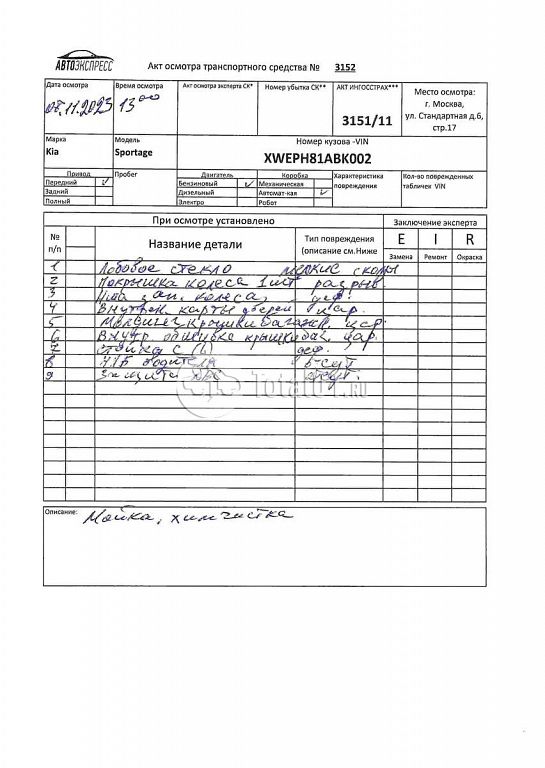 АВТОЭКСПРЕСС
Акт осмотра транспортного средства № 3152
Дата осмотра
08.11.2023
Время осмотра
13 00
Акт осмотра эксперта СК*
Номер убытка СК**
АКТ ИНГОССТРАХ***
3151/11
Место осмотра:
г. Москва,
ул. Стандартная д.6,
стр.17
Марка
Kia
Модель
Sportage
Номер кузова -VIN
XWEPH81ABK002
Привод
Передний ✓
Задний
Полный
Пробег
Двигатель
Бензиновый ✓
Дизельный
Электро
Коробка
Механическая
Автомат-кая ✓
Робот
Характеристика
повреждения
Кол-во поврежденных
табличек VIN
При осмотре установлено
Заключение эксперта
№
п/п
Название детали
Тип повреждения
(описание см.Ниже
E I R
Замена Ремонт Окраска
1 Лобовое стекло мелкие сколы
2 Покрышка колеса 1 шт разрыв
3 зап. колеса, деф.
4 Внутрен. карты дверей цар.
5 крышки багажн. цар.
6 Внутр. обшивка крышки баг. цар.
7 стойка с (Л) деф.
8 водителя отсут
9 защита ДВС отсут.
Total01.ru
Описание: Мойка, химчистка